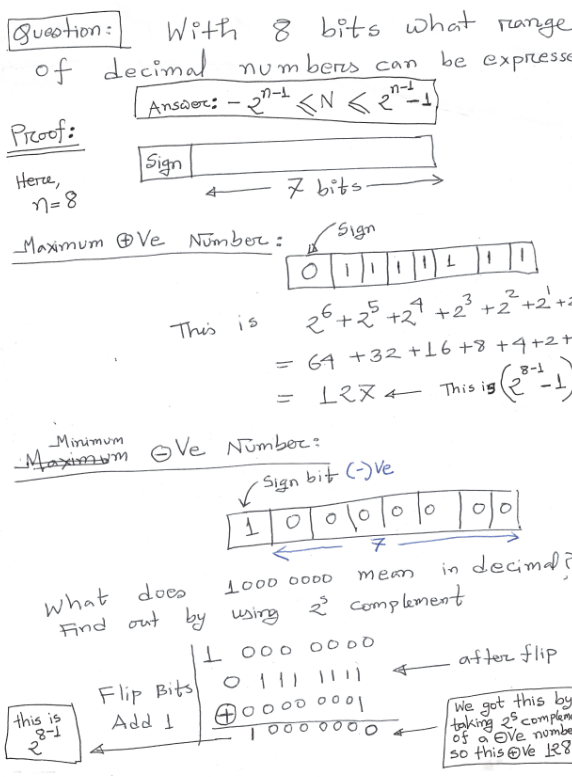 Question: With 8 bits what range
of decimal numbers can be expresse
Answer: -2^(n-1) ≤ N ≤ 2^(n-1) - 1
Proof:
Sign
Here,
n=8
7 bits
Maximum ⊕Ve Number:
Sign
0 1 1 1 1 1 1 1
This is 2^6 + 2^5 + 2^4 + 2^3 + 2^2 + 2^1 + 2
= 64 + 32 + 16 + 8 + 4 + 2 +
= 127 ← This is (2^(8-1) - 1)
Minimum
Maximum ⊖Ve Number:
Sign bit (-)ve
1 0 0 0 0 0 0 0
7
What does 1000 0000 mean in decimal?
Find out by using 2^s complement
1 000 0000
0 111 1111 ← after flip
Flip Bits
Add 1
⊕ 0000 0001
1 000 0000
this is
2^(8-1)
We got this by
taking 2^s compleme
of a ⊖Ve numbe
so this ⊕ve 128